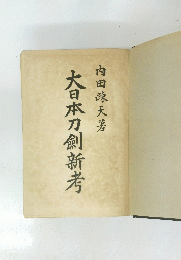 内田疎天著
大日本刀剣新考